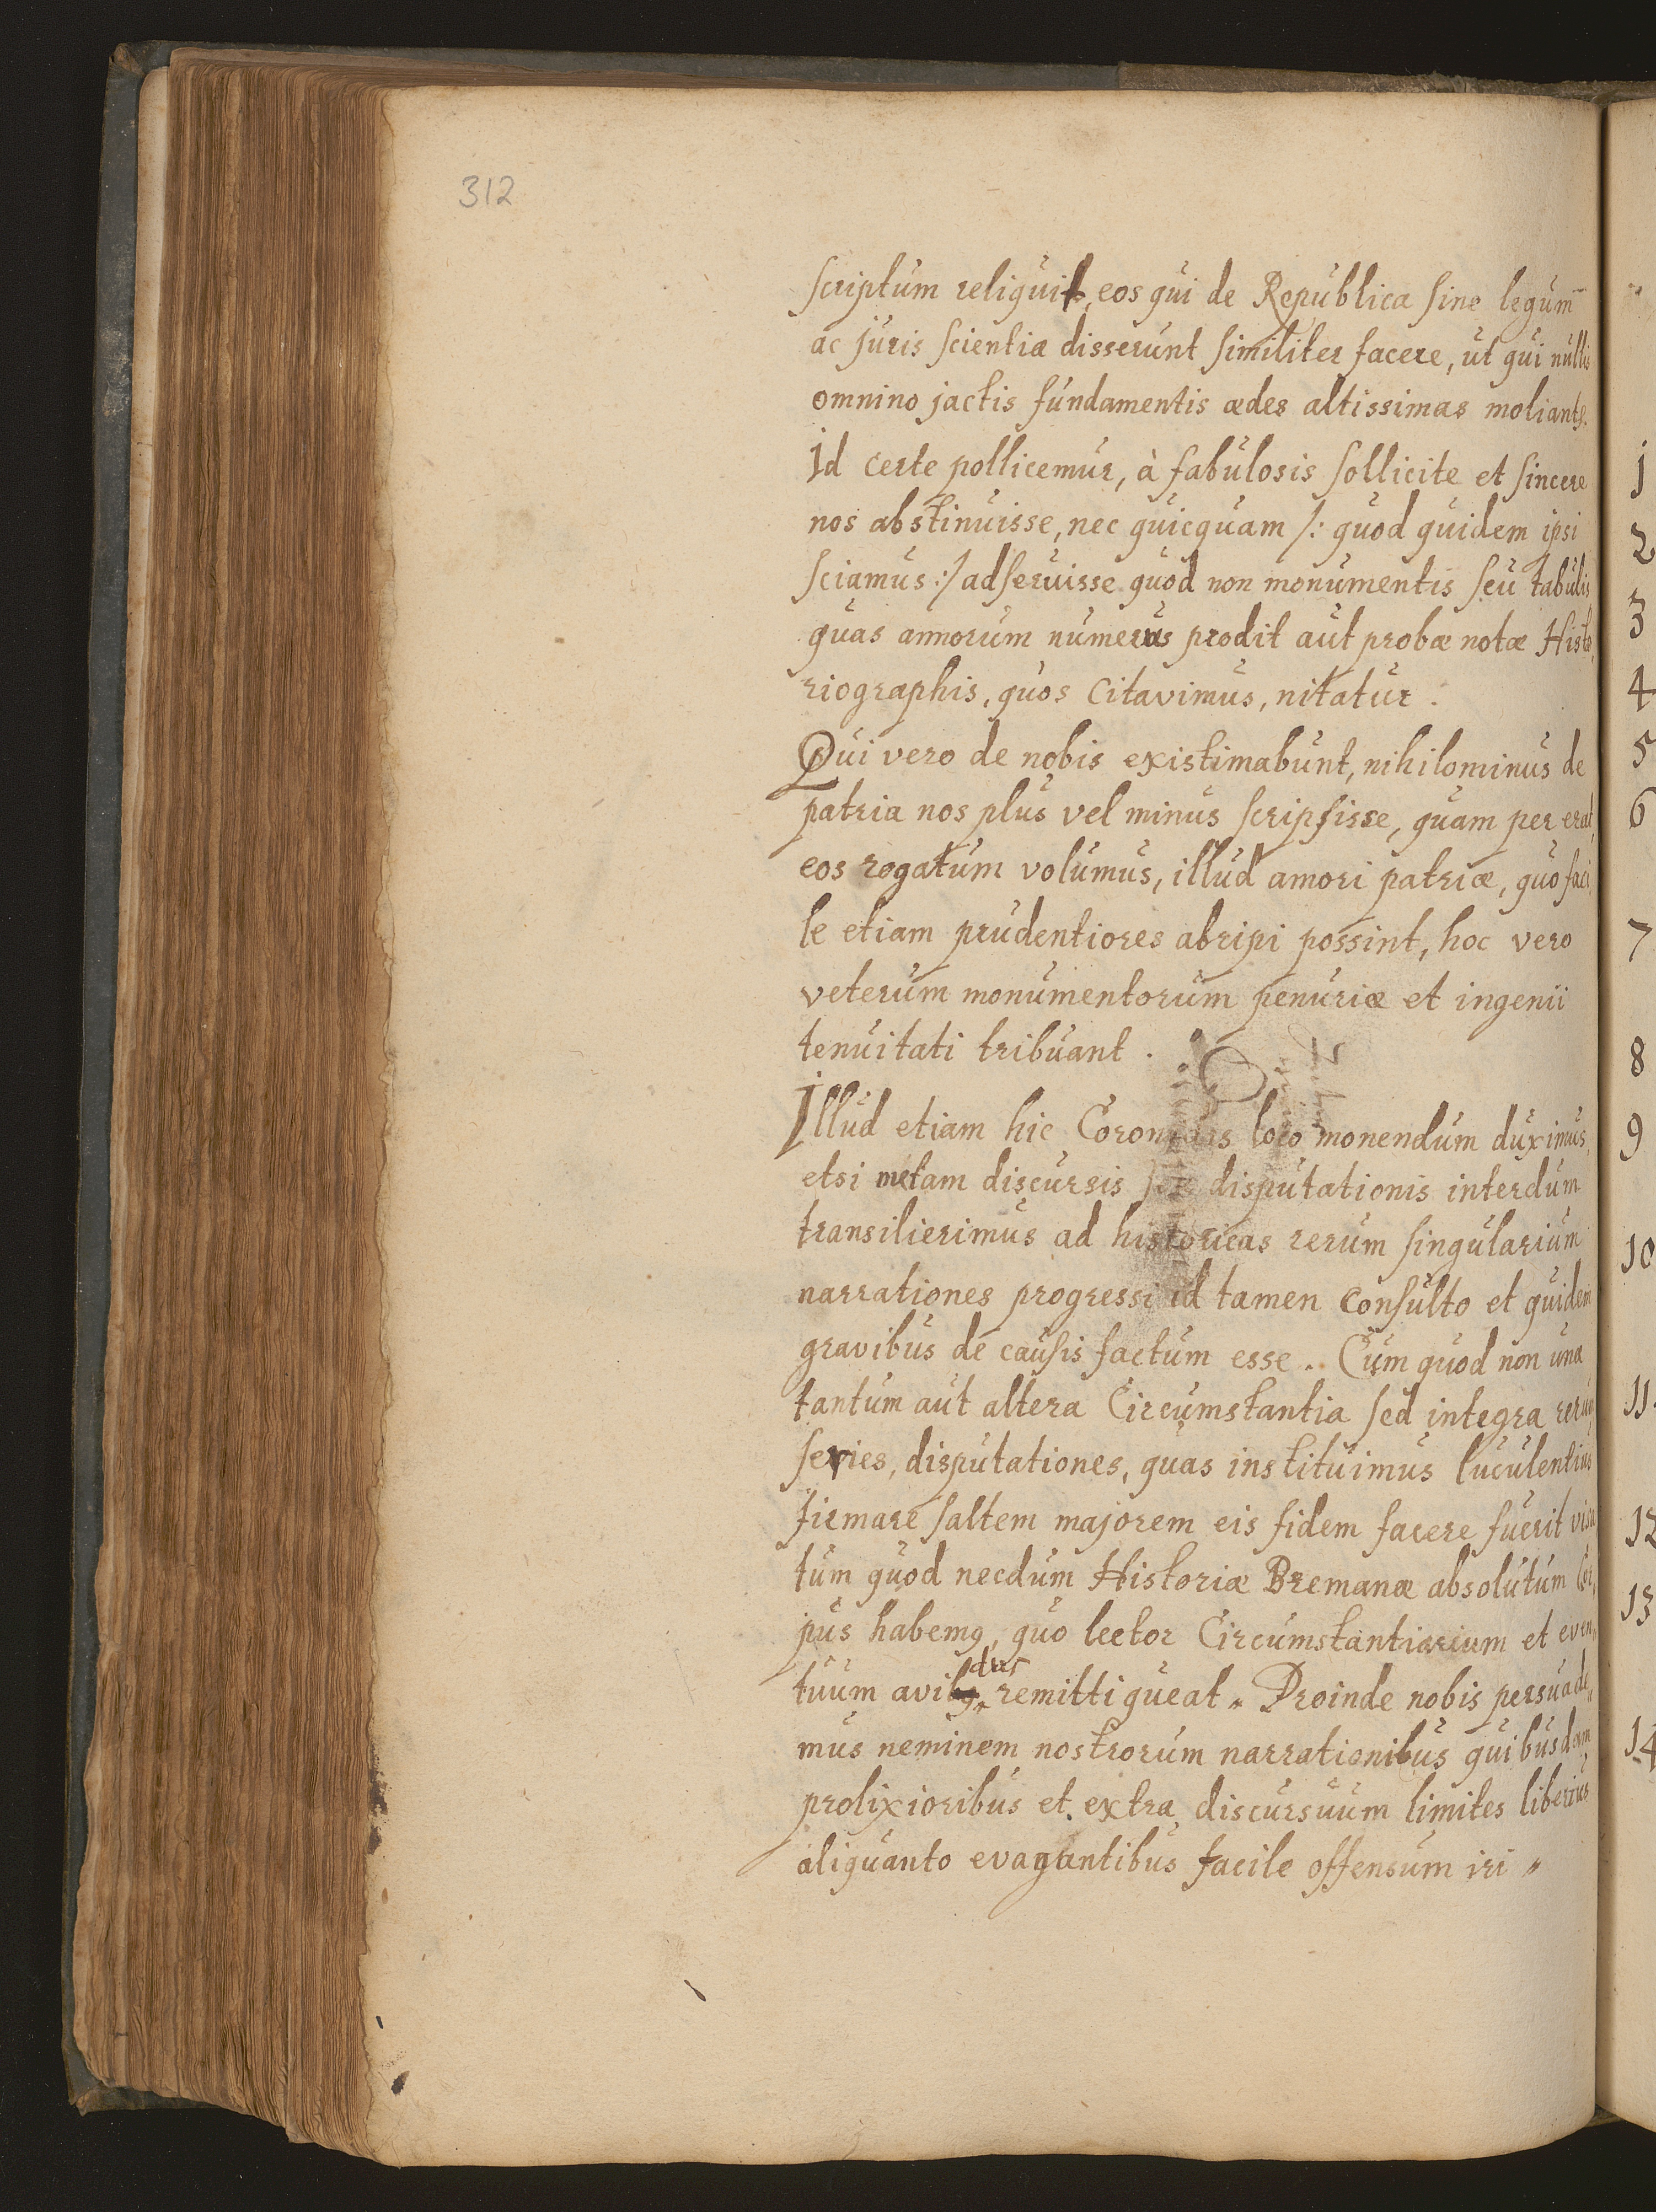 312
scriptum reliquit, eos qui de Republica sine legum
ac juris scientia disserunt similiter facere, ut qui nullis
omnino jactis fundamentis ædes altissimas moliantr.
Id certe pollicemur, à fabulosis sollicite et sincere
nos abstinuisse, nec quicquam /: quod quidem ipsi
sciamus :/ adseruisse quod non monumentis seu tabulis
quas annorum numerus prodit aut probæ notæ Histo,
riographis, quos Citavimus, nitatur.
Qui vero de nobis existimabunt, nihilominus de
patria nos plus vel minus scripsisse, quam per erat,
eos rogatum volumus, illud amori patriæ, quo faci,
le etiam prudentiores abripi possint, hoc vero
veterum monumentorum penuriæ et ingenii
tenuitati tribuant.
Illud etiam hic Coronidis loco monendum duximus,
etsi metam discursis disputationis interdum
transilierimus ad historicas rerum singularium
narrationes progressi id tamen Consulto et quidem
gravibus de causis factum esse. Cum quod non una
tantum aut altera Circumstantia sed integra rerum
series, disputationes, quas instituimus luculentius
firmare saltem majorem eis fidem facere fuerit visa
tum quod necdum Historiæ Bremanæ absolutum
pus habemq, quo lector Circumstantiarium et even,,
tuum avidus remitti queat,, Proinde nobis persuade,,
mus neminem nostrorum narrationibus quibusdam
prolixioribus et extra discursuum limites liberius
aliquanto evagantibus facile offensum iri,,
1
2
3
4
5
6
7
8
9
10
11.
12
13
14